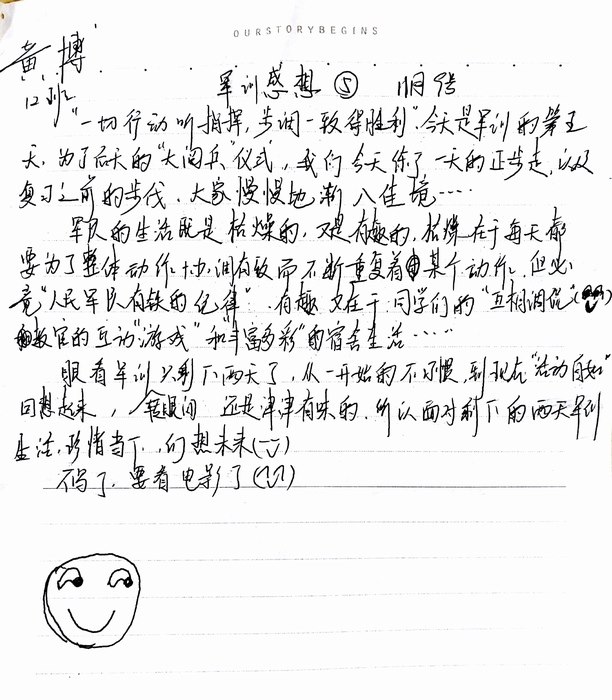 OURSTORYBEGINS
黄博
12班
军训感想⑤ 11月9号
"一切行动听指挥,步调一致得胜利".今天是军训的第五
天,为了后天的"大阅兵"仪式,我们今天练了一天的正步走,以及
复习之前的步伐,大家慢慢地渐入佳境……
军队的生活既是枯燥的,又是有趣的,枯燥在于每天都
要为了整体动作协调有致而不断重复着某个动作,但必
竟"人民军队有铁的纪律".有趣又在于同学们的"互相调侃"
教官的互动"游戏"和"丰富多彩"的宿舍生活……
眼看军训只剩下两天了,从一开始的不习惯,到现在"活动自如"
回想起来,忽间还是津津有味的.所以面对剩下的两天军训
生活,珍惜当下,幻想未来
不写了,要看电影了